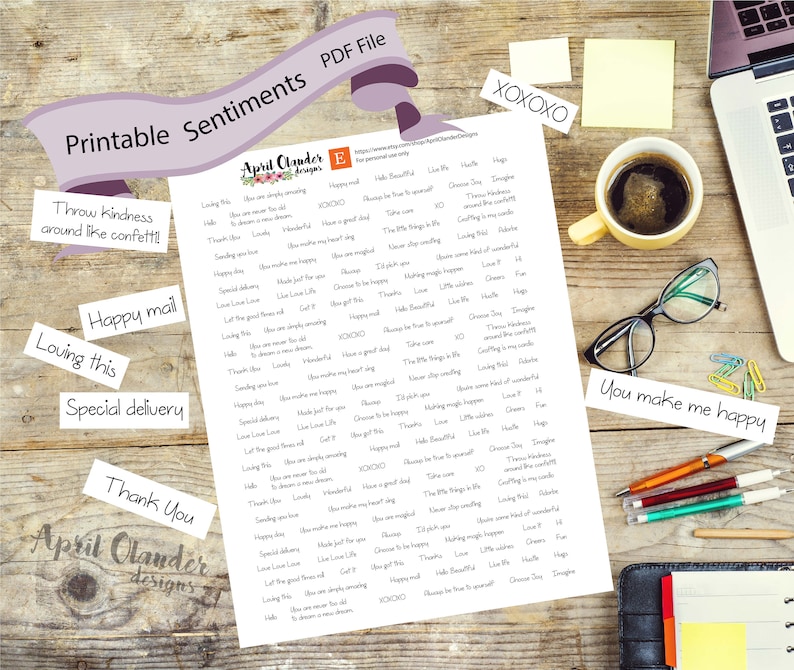 Printable Sentiments PDF File
XOXOXO
April Olander
designs
E
https://www.etsy.com/shop/AprilOlanderDesigns
For personal use only
Throw kindness
around like confetti!
Happy mail
Loving this
Special delivery
Thank You
You make me happy
April Olander
designs
Loving this You are simply amazing Happy mail Hello Beautiful Live life Hustle Hugs
Hello You are never too old
to dream a new dream. XOXOXO Always be true to yourself Choose Joy Imagine
Thank You Lovely Wonderful Have a great day! Take care XO Throw Kindness
around like confetti
Sending you love You make my heart sing The little things in life Crafting is my cardio
Happy day You make me happy You are magical Never stop creating Loving this! Adorbs
Special delivery Made just for you Always I'd pick you You're some kind of wonderful
Love Love Love Live Love Life Choose to be happy Making magic happen Love it Hi
Let the good times roll Get it You got this Thanks Love Little wishes Cheers Fun
Loving this You are simply amazing Happy mail Hello Beautiful Live life Hustle Hugs
Hello You are never too old
to dream a new dream. XOXOXO Always be true to yourself Choose Joy Imagine
Thank You Lovely Wonderful Have a great day! Take care XO Throw Kindness
around like confetti
Sending you love You make my heart sing The little things in life Crafting is my cardio
Happy day You make me happy You are magical Never stop creating Loving this! Adorbs
Special delivery Made just for you Always I'd pick you You're some kind of wonderful
Love Love Love Live Love Life Choose to be happy Making magic happen Love it Hi
Let the good times roll Get it You got this Thanks Love Little wishes Cheers Fun
Loving this You are simply amazing Happy mail Hello Beautiful Live life Hustle Hugs
Hello You are never too old
to dream a new dream. XOXOXO Always be true to yourself Choose Joy Imagine
Thank You Lovely Wonderful Have a great day! Take care XO Throw Kindness
around like confetti
Sending you love You make my heart sing The little things in life Crafting is my cardio
Happy day You make me happy You are magical Never stop creating Loving this! Adorbs
Special delivery Made just for you Always I'd pick you You're some kind of wonderful
Love Love Love Live Love Life Choose to be happy Making magic happen Love it Hi
Let the good times roll Get it You got this Thanks Love Little wishes Cheers Fun
Loving this You are simply amazing Happy mail Hello Beautiful Live life Hustle Hugs
Hello You are never too old
to dream a new dream. XOXOXO Always be true to yourself Choose Joy Imagine